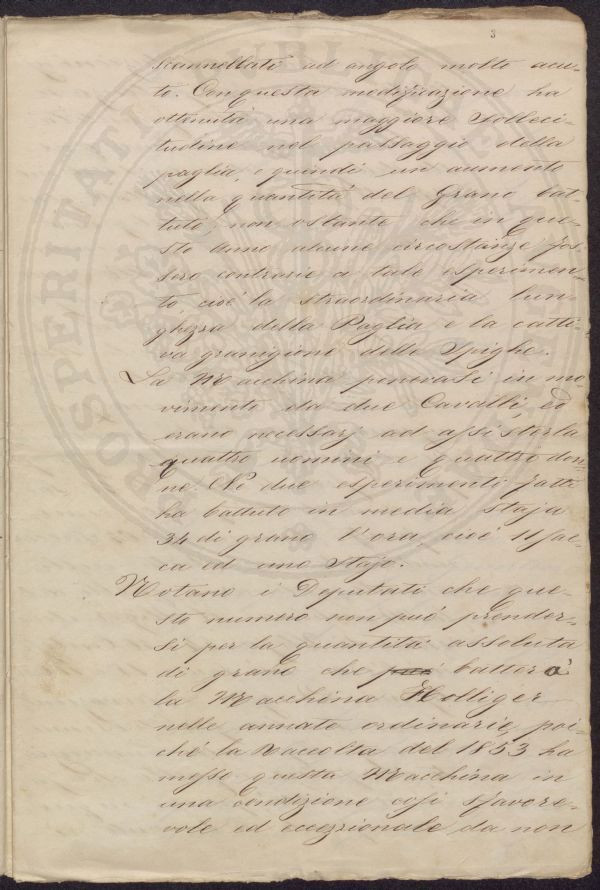 3
scannellati ad angolo molto acu-
to. Con questa modificazione ha
ottenuta una maggiore solleci-
tudine nel passaggio della
paglia, e quindi un aumento
nella quantità del Grano bat-
tuto, non ostante che in que-
sto anno alcune circostanze fos-
sero contrarie a tale esperimen-
to, cioè la straordinaria lun-
ghezza della Paglia e la catti-
va granigione delle Spighe.
La Macchina ponevasi in mo-
vimento da due Cavalli, ed
erano necessarj ad assisterla
quattro uomini e quattro don-
ne. Ne' due esperimenti fatti
ha battuto in media staja
34 di grano l'ora, cioè 11 sac-
ca ed uno stajo.
Notano i Deputati che que-
sto numero non può prender-
si per la quantità assoluta
di grano che batterà
la Macchina Holliger
nelle annate ordinarie, poi-
chè la Raccolta del 1853 ha
messo questa Macchina in
una condizione così sfavore-
vole ed eccezzionale da non
PROSPERITATI PUBLICAE AUGENDAE